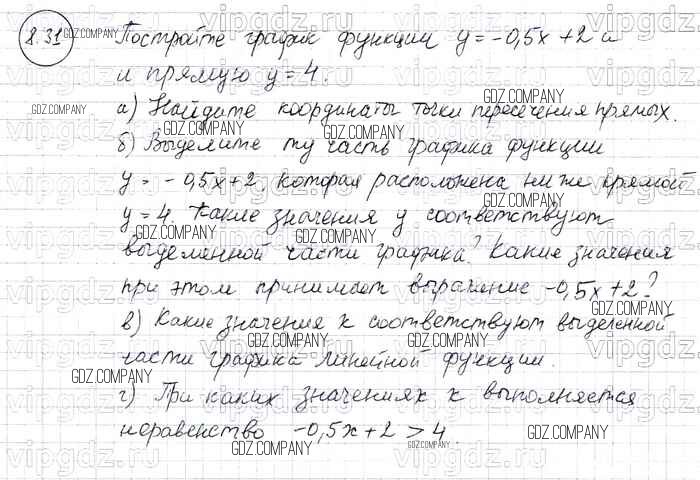 8.31 Постройте график функции y = -0,5x + 2 и
и прямую y = 4.
а) Найдите координаты точки пересечения прямых.
б) Выделите ту часть графика функции
y = -0,5x + 2, которая расположена ниже прямой
y = 4. Какие значения y соответствуют
выделенной части графика? Какие значения
при этом принимает выражение -0,5x + 2?
в) Какие значения x соответствуют выделенной
части графика линейной функции.
г) При каких значениях x выполняется
неравенство -0,5x + 2 > 4.